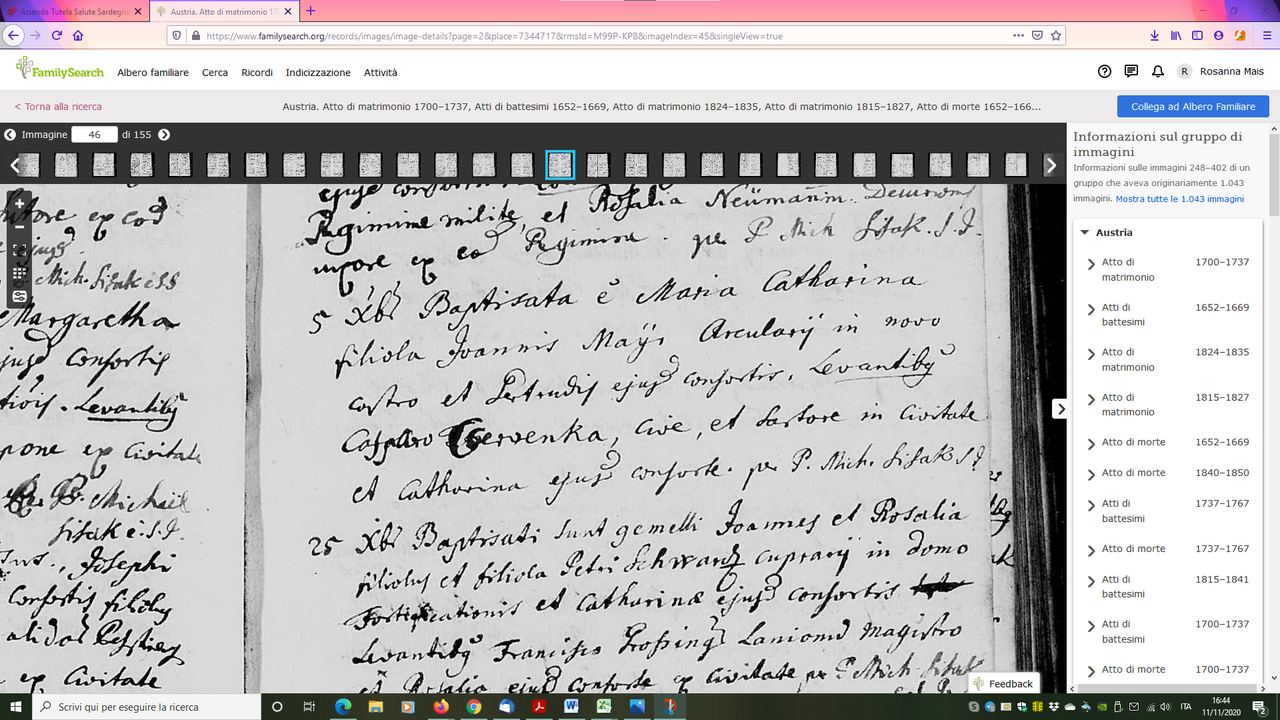 Azienda Tutela Salute Sardegna
Austria. Atto di matrimonio 170
https://www.familysearch.org/records/images/image-details?page=2&place=7344717&rmsId=M99P-KP8&imageIndex=45&singleView=true
FamilySearch
Albero familiare
Cerca
Ricordi
Indicizzazione
Attività
R
Rosanna Mais
< Torna alla ricerca
Austria. Atto di matrimonio 1700–1737, Atti di battesimi 1652–1669, Atto di matrimonio 1824–1835, Atto di matrimonio 1815–1827, Atto di morte 1652–166...
Collega ad Albero Familiare
Immagine 46 di 155
Informazioni sul gruppo di
immagini
Informazioni sulle immagini 248–402 di un
gruppo che aveva originariamente 1.043
immagini. Mostra tutte le 1.043 immagini
Austria
Atto di matrimonio 1700–1737
Atti di battesimi 1652–1669
Atto di matrimonio 1824–1835
Atto di matrimonio 1815–1827
Atto di morte 1652–1669
Atto di morte 1840–1850
Atti di battesimi 1737–1767
Atto di morte 1737–1767
Atti di battesimi 1815–1841
Atti di battesimi 1700–1737
Atto di morte 1700–1737
Margaretha
ejusd consortis
Levantibq
ex Civitate
Michael
Sisak è S.I.
Josephi
Consortis filiolq
ex Civitate
Regimine milite, et Rosalia
ex eod Regimine. per P. Mich Sisak. S.I.
5 Xbr Baptisata è Maria Catharina
filiola Joannis Mayr Arcularÿ in novo
castro et Gertrudis ejusd consortis. Levantibq
Casparo Czervenka, Cive, et Sartore in Civitate
et Catharina ejusd consorte. per P. Mich. Sisak S.I.
25 Xbr Baptisati sunt gemelli Joannes et Rosalia
filiolus et filiola Petri Schwartz cuprarÿ in domo
Fortificationis et Catharinæ ejusd consortis
Levantibq Francisco Magistro
et Rosalia ejusd consorte ex Civitate per P. Mich Sisak
Feedback
Scrivi qui per eseguire la ricerca
ITA
16:44
11/11/2020
2